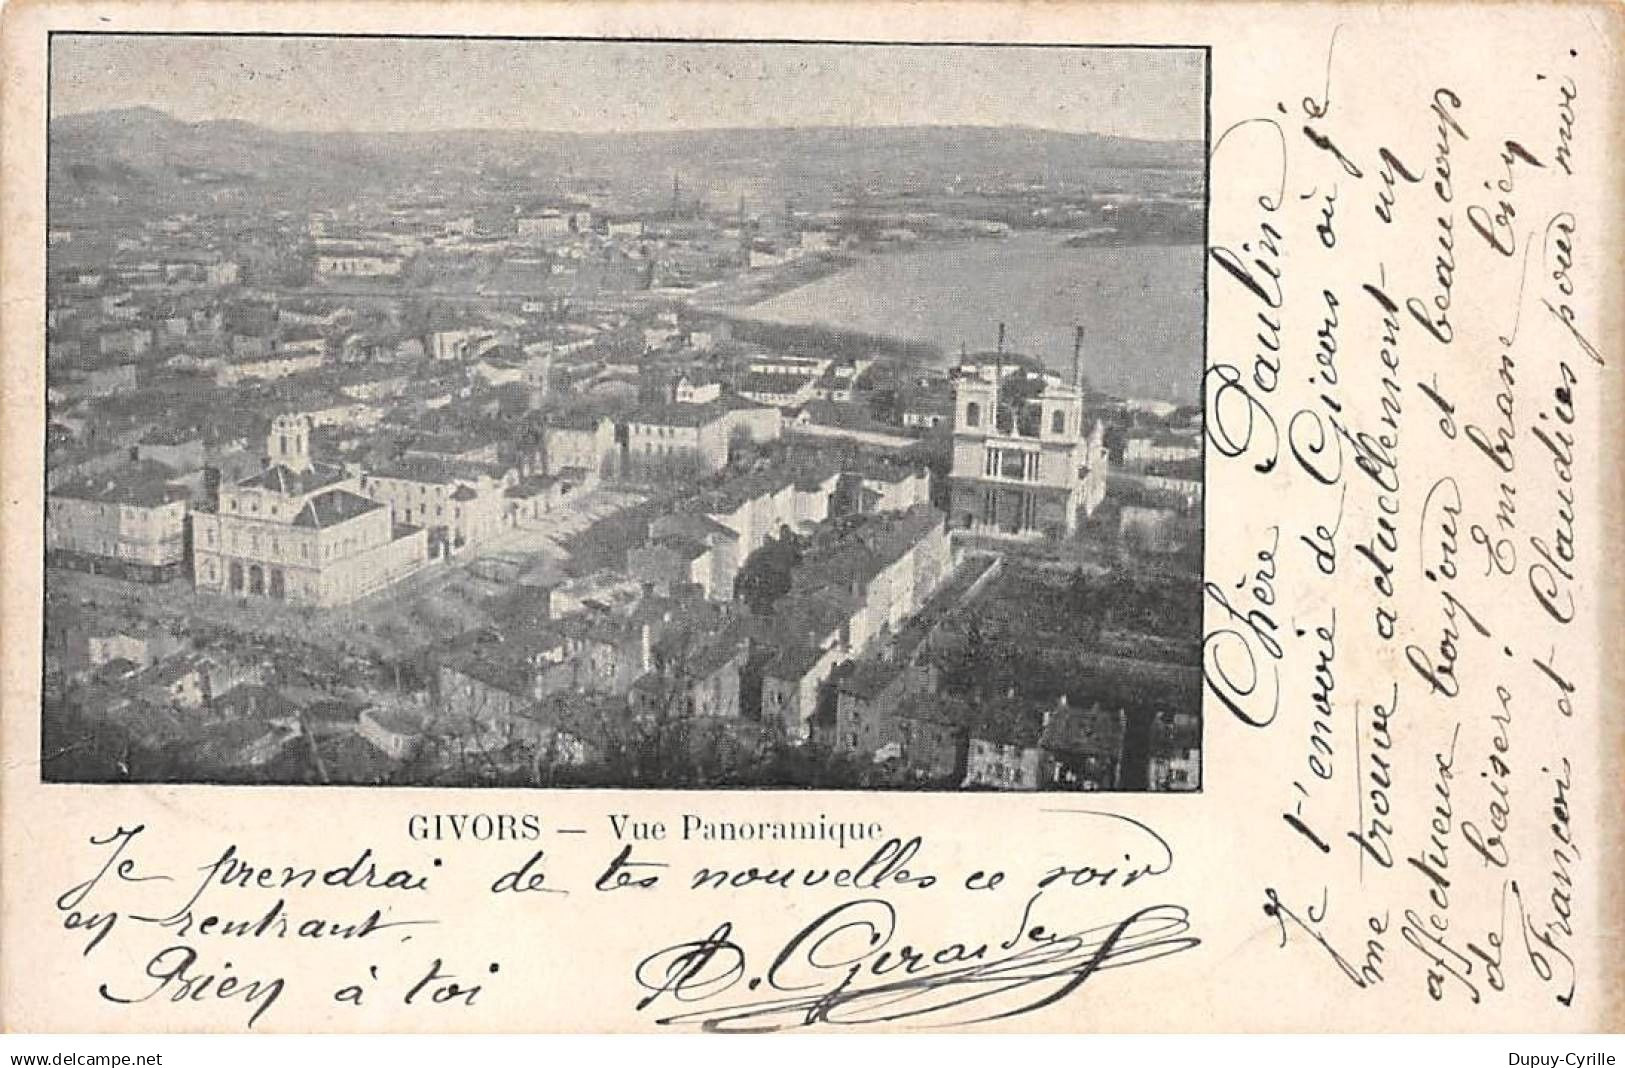 GIVORS — Vue Panoramique
Chère Pauline
Je t'envoie de Givors où je
me trouve actuellement un
affectueux bonjour et beaucoup
de baisers. Embrasse bien
François et Claudies pour moi.
Je prendrai de tes nouvelles ce soir
en rentrant.
Bien à toi
www.delcampe.net
Dupuy-Cyrille